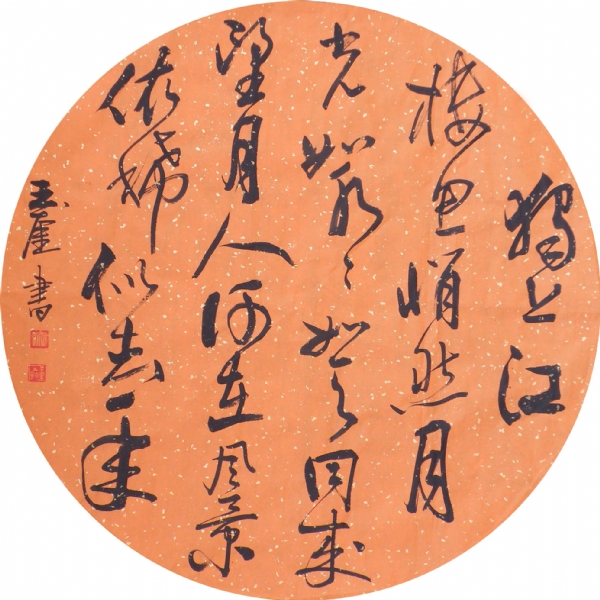 獨上江
楼思悄然月
光如水々如天同来
望月人何在风景
依稀似去年
玉書